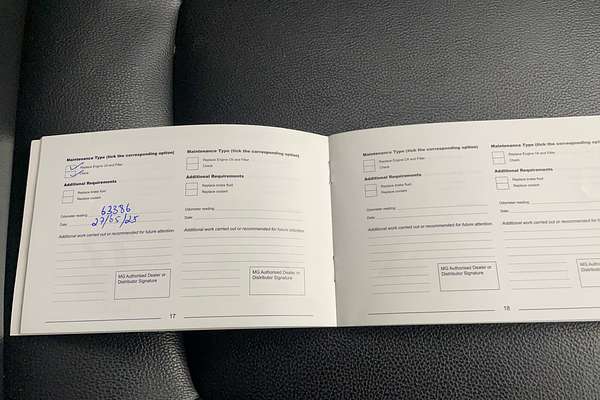 Maintenance Type (tick the corresponding option)
Replace Engine Oil and Filter
Check
Additional Requirements
Replace brake fluid
Replace coolant
Odometer reading 63386
Date 27/05/25
Additional work carried out or recommended for future attention
MG Authorised Dealer or
Distributor Signature
Maintenance Type (tick the corresponding option)
Replace Engine Oil and Filter
Check
Additional Requirements
Replace brake fluid
Replace coolant
Odometer reading
Date
Additional work carried out or recommended for future attention
MG Authorised Dealer or
Distributor Signature
17
Maintenance Type (tick the corresponding option)
Replace Engine Oil and Filter
Check
Additional Requirements
Replace brake fluid
Replace coolant
Odometer reading
Date
Additional work carried out or recommended for future attention
MG Authorised Dealer or
Distributor Signature
Maintenance Type (tick the corresponding
Replace Engine Oil and Filter
Check
Additional Requirements
Replace brake fluid
Replace coolant
Odometer reading
Date
Additional work carried out or recommended
MG
Dist
18